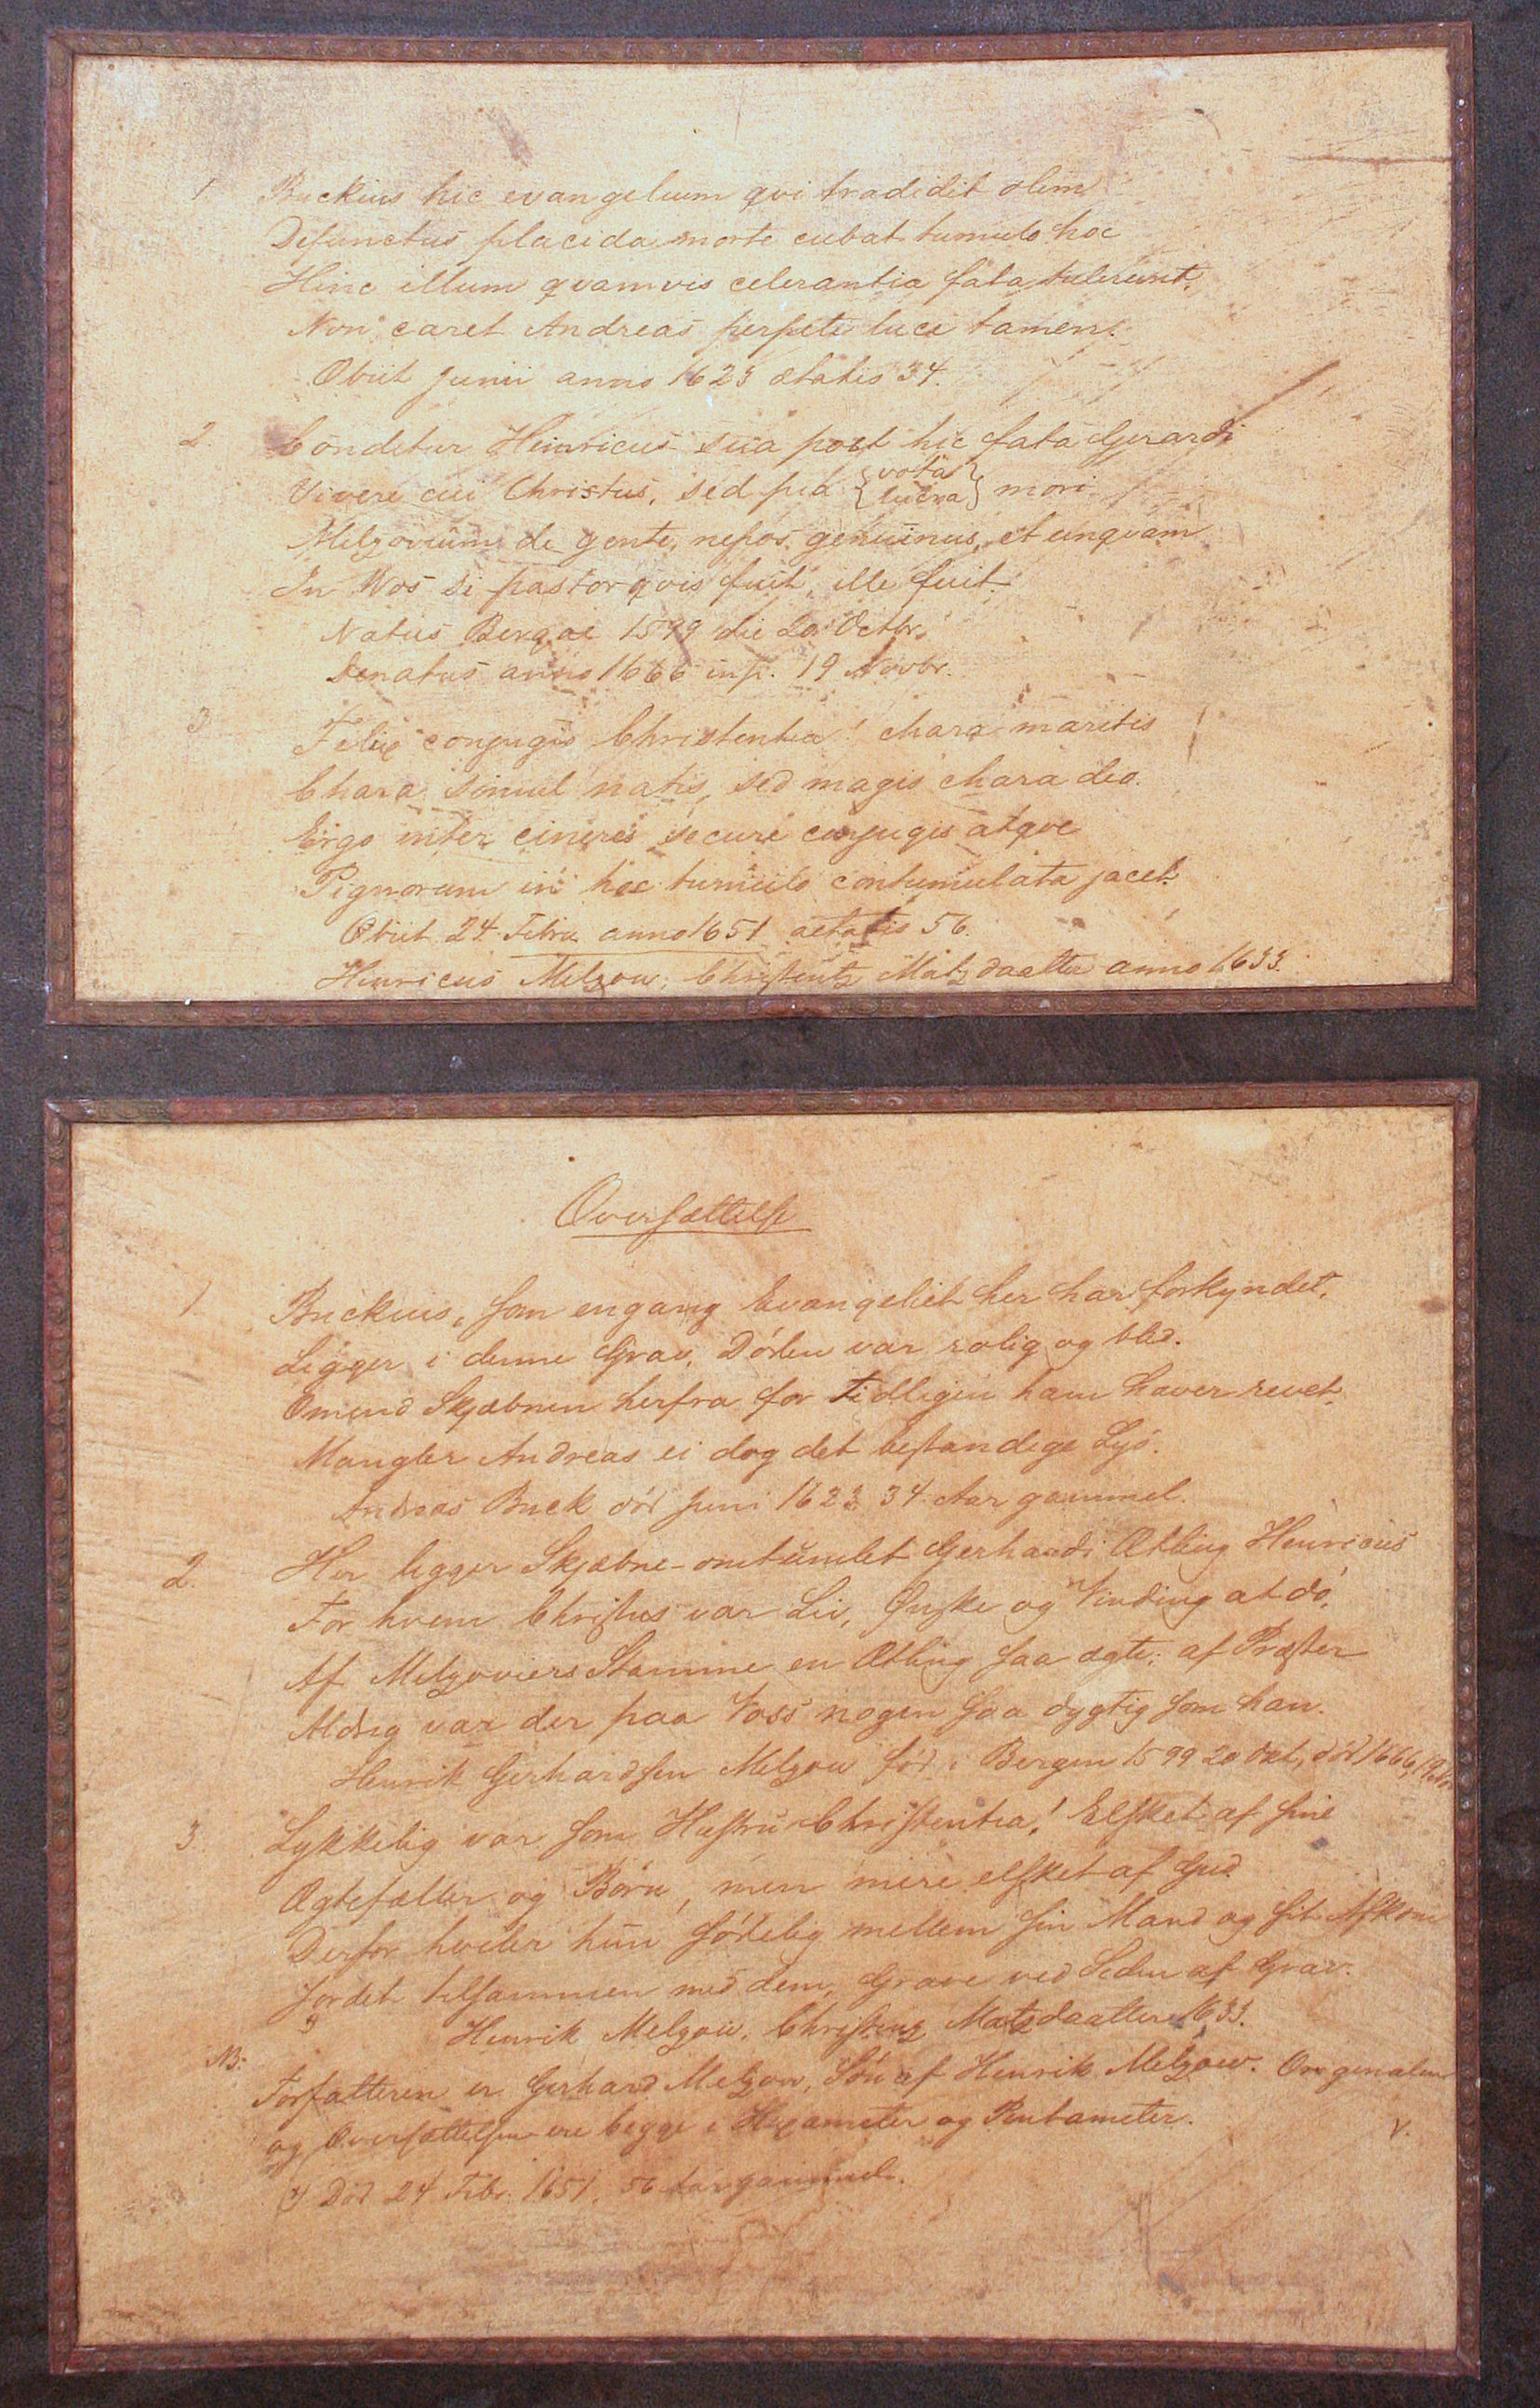 1 Buckius hic evangelium qvi tradidit olim
Defunctus placida morte cubat tumulo hoc
Hinc illum qvamvis celerantia fata tulerunt,
Non caret Andreas perpete luce tamen.
Obiit Junii anno 1623 ætatis 34.
2. Conditur Heinricus sua post hic fata Gerardi
Vivere cui Christus, sed pia {vota} {lucra} mori
Melzovium de gente, nepos genuinus, et unqvam
In Wos si pastor qvis fuit, ille fuit.
Natus Bergae 1599 die 20 Octbr.
Denatus anno 1666 19 Novbr.
3 Felix conjugio Christentia! chara maritis
Chara simul natis, sed magis chara deo.
Ergo inter cineres secure conjugis atqve
Pignorum in hoc tumulo contumulata jacet.
Obiit 24 Febru anno 1651 aetatis 56.
Henricus Melzow, Christentz Matzdaatter anno 1633.
Oversættelse
1 Buckius, som engang Evangeliet her har forkyndet,
Ligger i denne Grav, Döden var rolig og blid.
Omend Skjæbnen herfra for tidligen ham haver revet,
Mangler Andreas ei dog det bestandige Lys.
Andreas Buck död Juni 1623 34 Aar gammel.
2. Her ligger Skjæbne-omtumlet Gerhardi Ætling Henricus
For hvem Christus var Liv, Önske og Vinding at dö,
Af Melzoviers Stamme en Ætling saa ægte; af Præster
Aldrig var der paa Voss nogen saa dygtig som han.
Henrik Gerhardsen Melzow föd i Bergen 1599 20 Okt, död 1666, 19
3. Lykkelig var som Hustru Christentia! Elsket af sine
Ægtefæller og Börn, men mere elsket af Gud
Derfor hviler hun södelig mellem sin Mand og sit Afkom
Jordet tilsammen med dem, Grave ved Siden af Grav.
Henrik Melzow, Christentz Matzdaatter 1633.
NB: Forfatteren er Gerhard Melzow, Sön af Henrik Melzow. Originalen
og Oversættelsen ere begge i Hexameter og Pentameter.
V.
Död 24 Febr. 1651, 56 Aar gammel.